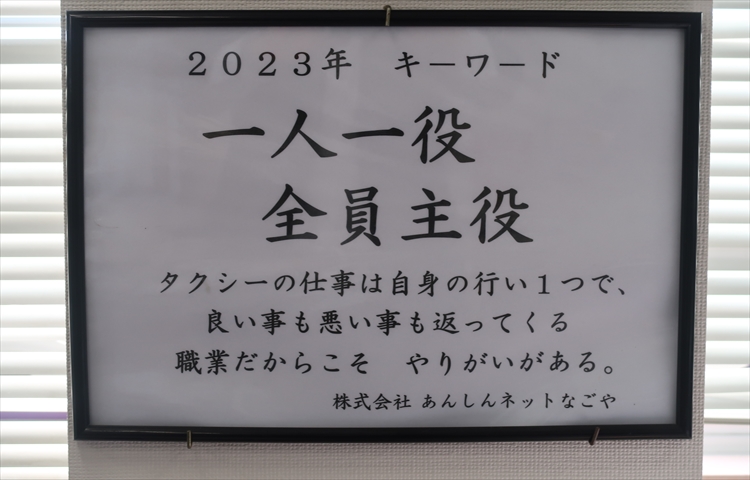 ２０２３年　キーワード
一人一役
全員主役
タクシーの仕事は自身の行い１つで、
良い事も悪い事も返ってくる
職業だからこそ　やりがいがある。
株式会社 あんしんネットなごや